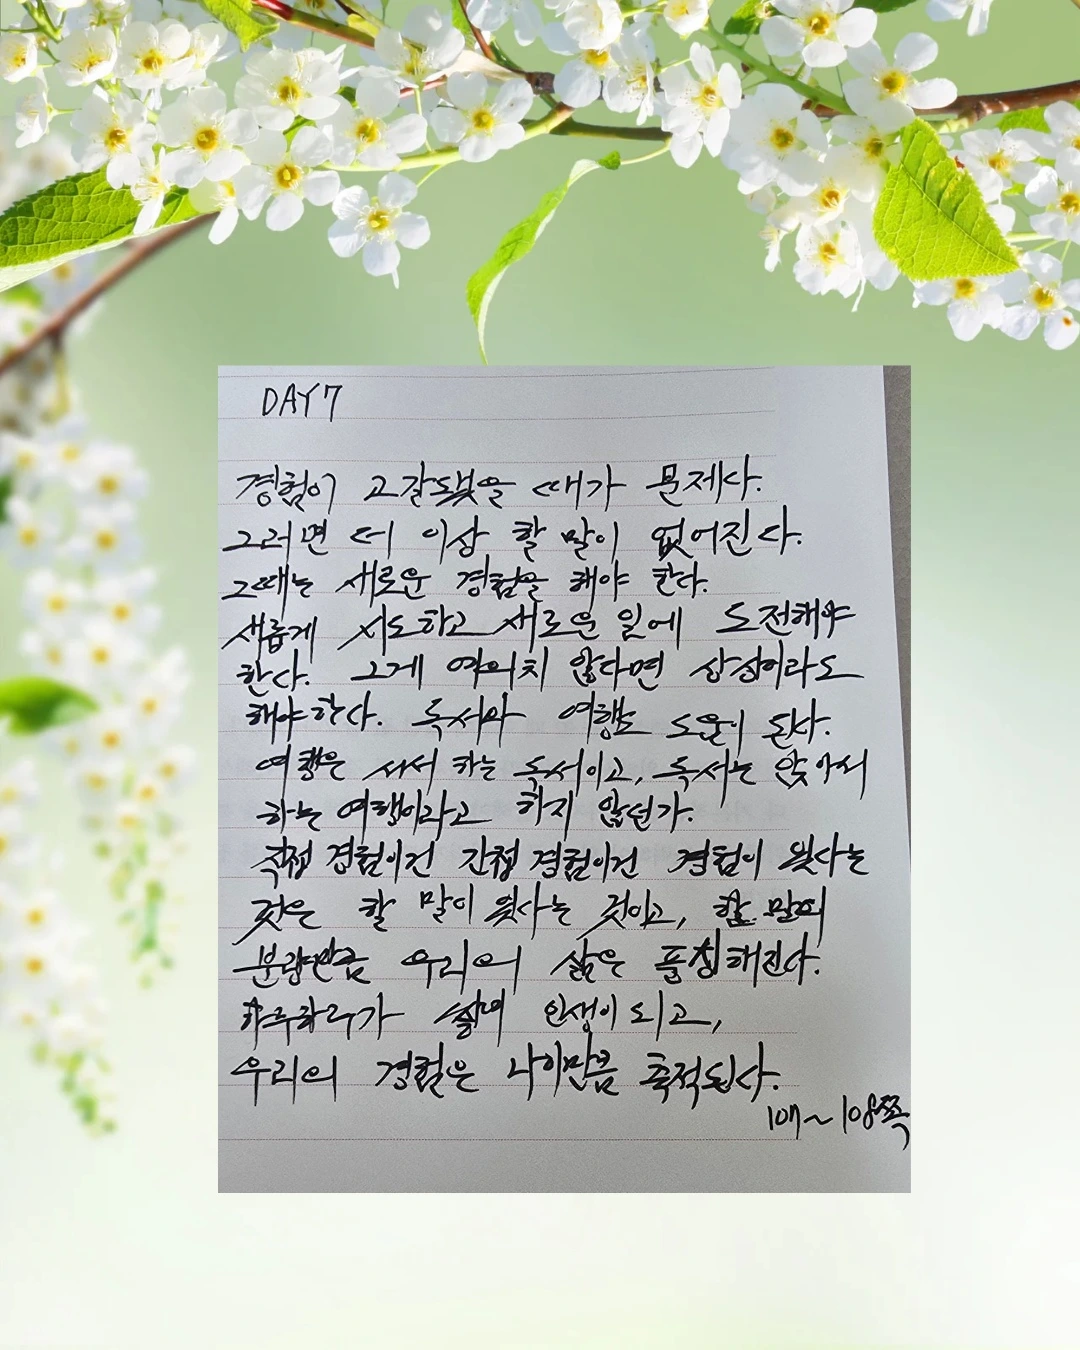 DAY 7
경험이 고갈됐을 때가 문제다.
그러면 더 이상 할 말이 없어진다.
그때는 새로운 경험을 해야 한다.
새롭게 시도하고 새로운 일에 도전해야
한다. 그게 여의치 않다면 상상이라도
해야한다. 독서와 여행도 도움이 된다.
여행은 서서 하는 독서이고, 독서는 앉아서
하는 여행이라고 하지 않던가.
직접 경험이건 간접 경험이건 경험이 있다는
것은 할 말이 있다는 것이고, 할 말의
분량만큼 우리의 삶은 풍성해진다.
하루하루가 쌓여 인생이 되고,
우리의 경험은 나이만큼 축적된다.
107~108쪽